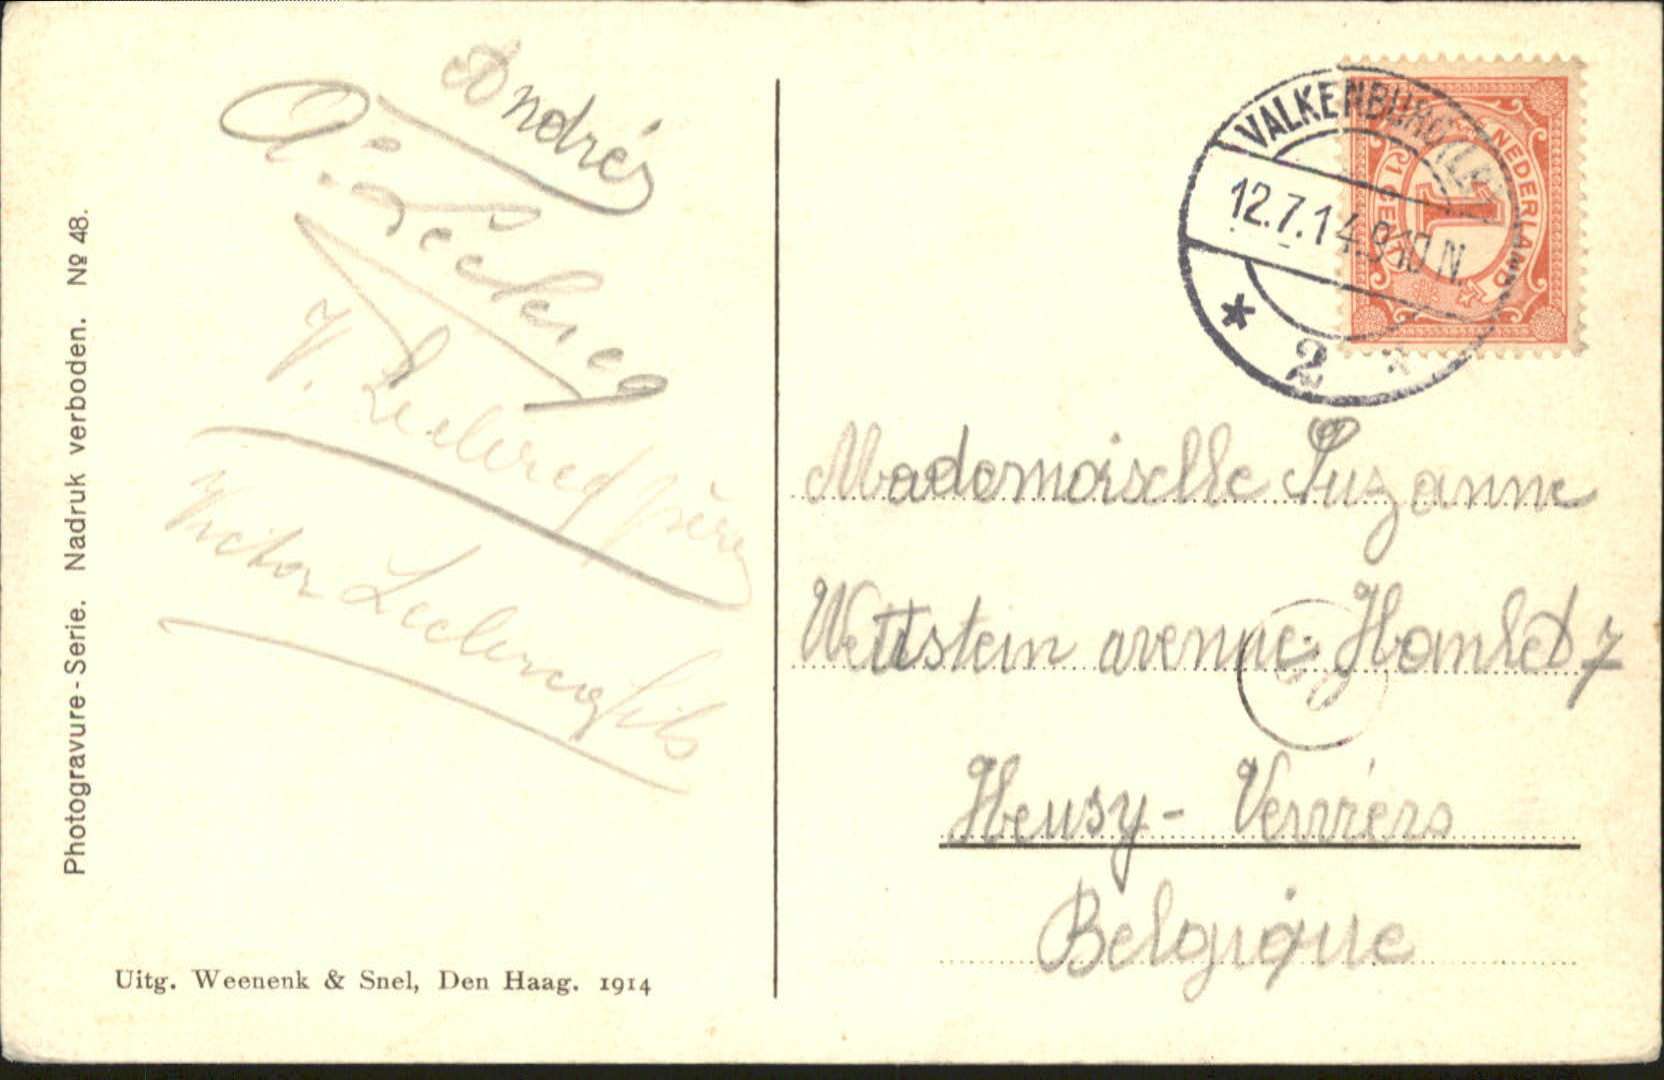 André
V. Leclercq père
Victor Leclercq fils
Photogravure-Serie. Nadruk verboden. № 48.
Uitg. Weenenk & Snel, Den Haag. 1914
VALKENBURG (L.)
12.7.14.9-10 N.
2
NEDERLAND
1 CENT
1
Mademoiselle Suzanne
Wettstein avenue Hanlet 7
Heusy - Verviers
Belgique